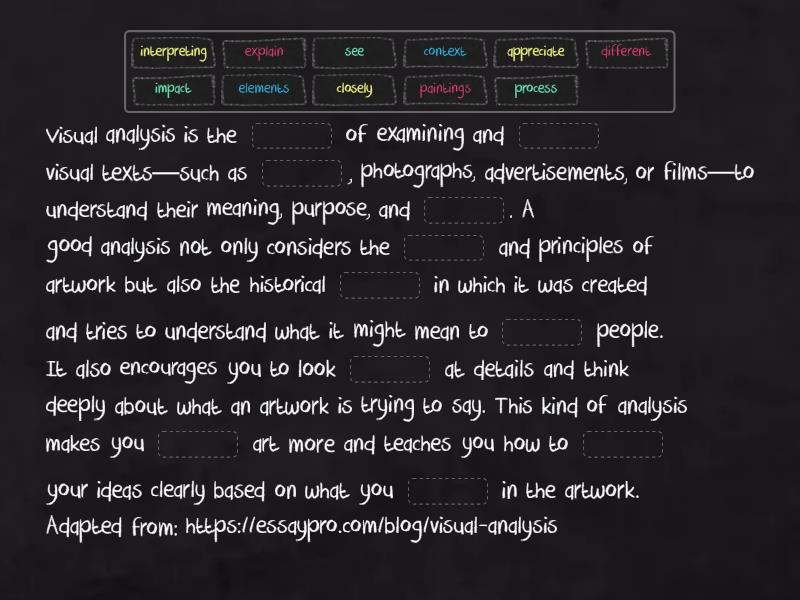 interpreting explain see context appreciate different
impact elements closely paintings process
Visual analysis is the of examining and
visual texts—such as , photographs, advertisements, or films—to
understand their meaning, purpose, and . A
good analysis not only considers the and principles of
artwork but also the historical in which it was created
and tries to understand what it might mean to people.
It also encourages you to look at details and think
deeply about what an artwork is trying to say. This kind of analysis
makes you art more and teaches you how to
your ideas clearly based on what you in the artwork.
Adapted from: https://essaypro.com/blog/visual-analysis